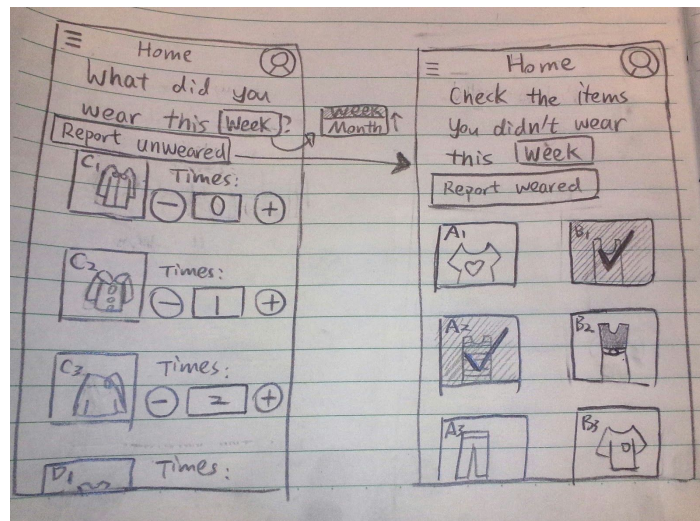 Home
What did you
wear this Week?
Week
Month
Report unweared
C1
Times:
0
C2
Times:
1
C3
Times:
2
D1
Times:
Home
Check the items
You didn't wear
this Week
Report weared
A1
B1
A2
B2
A3
B3